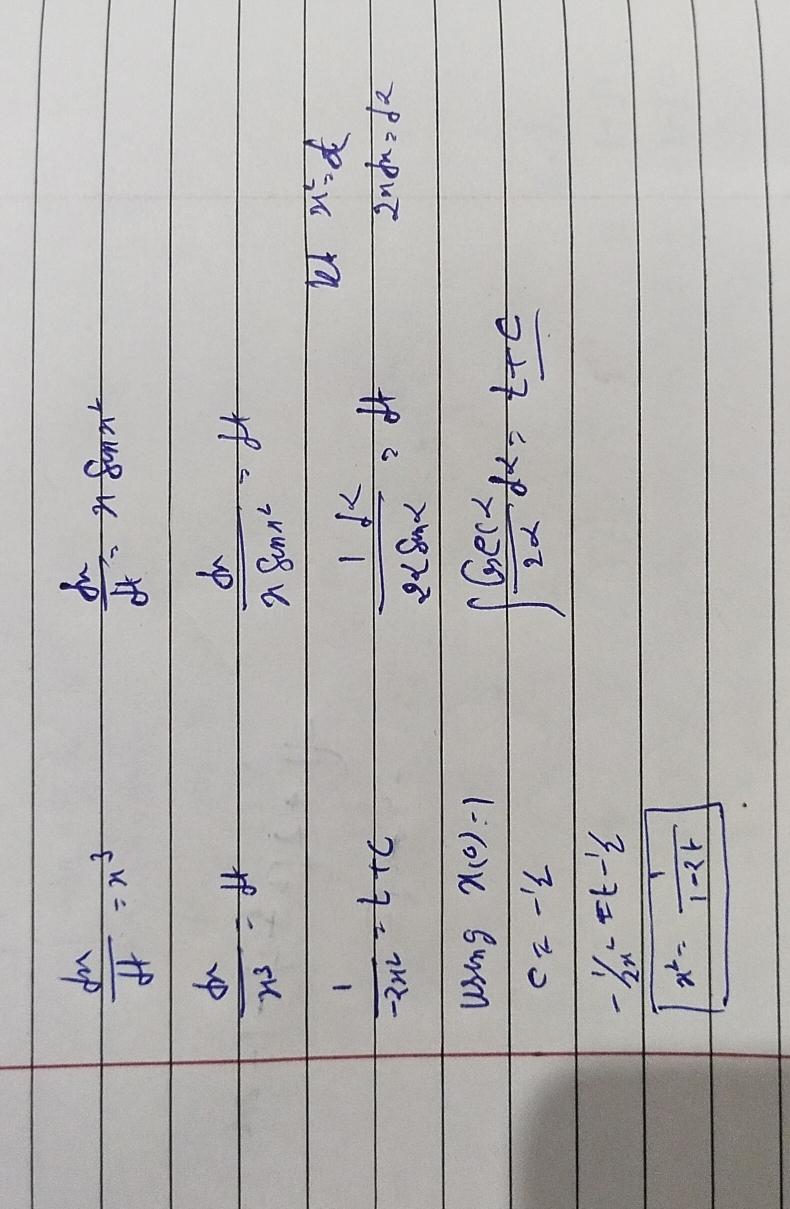 dx/dt = x³
dx/x³ = dt
1/-2x² = t+c
using x(0)=1
c = -1/2
-1/2x² = t - 1/2
x² = 1/1-2t
dx/dt = x sin x²
dx/x sin x² = dt
let x² = α
2x dx = dα
1 dα/2α sin α = dt
∫ cosec α/2α dα = t+c